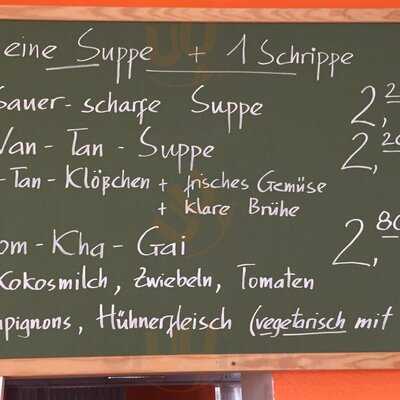 eine Suppe + 1 Schrippe
Sauer-scharfe Suppe 2,2
Wan-Tan-Suppe 2,20
-Tan-Klößchen + frisches Gemüse
+ klare Brühe
om-Kha-Gai 2,80
Kokosmilch, Zwiebeln, Tomaten
pignons, Hühnerfleisch (vegetarisch mit